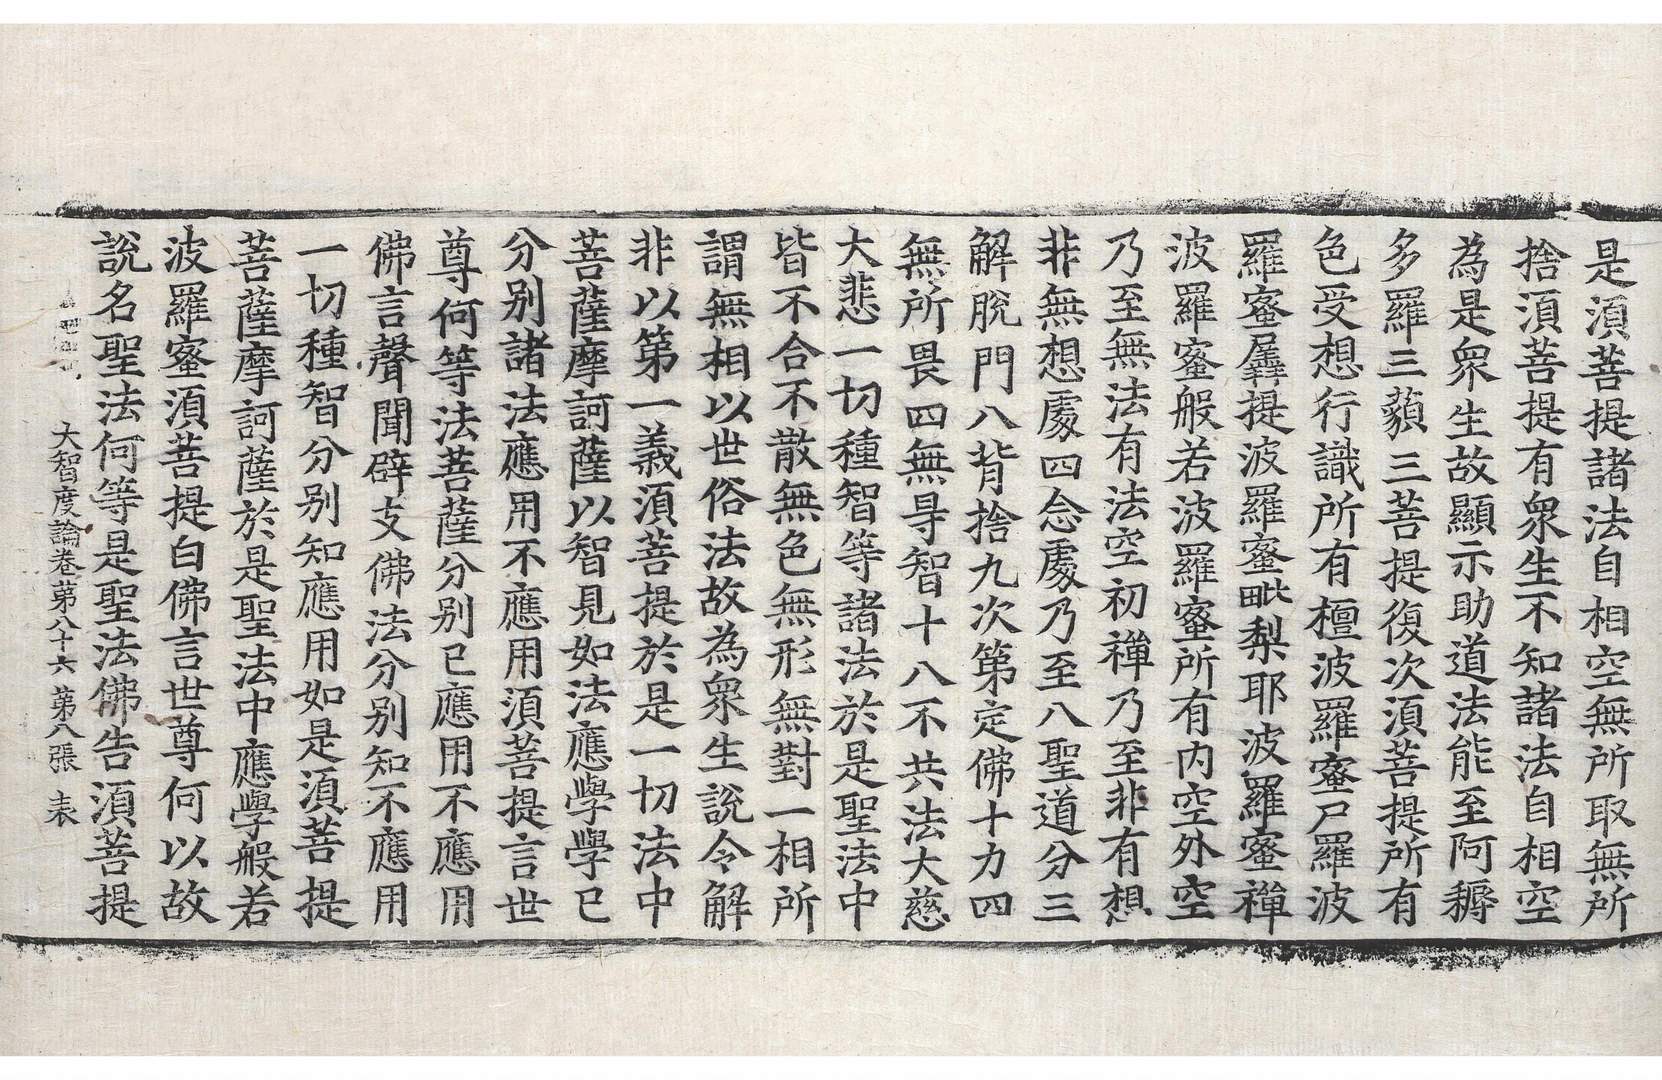 是湏菩提諸法自相空無所取無所
捨湏菩提有衆生不知諸法自相空
為是衆生故顯示助道法能至阿耨
多羅三藐三菩提復次湏菩提所有
色受想行識所有檀波羅蜜尸羅波
羅蜜羼提波羅蜜毗梨耶波羅蜜禪
波羅蜜般若波羅蜜所有内空外空
乃至無法有法空初禪乃至非有想
非無想處四念處乃至八聖道分三
解脫門八背捨九次第定佛十力四
無所畏四無㝵智十八不共法大慈
大悲一切種智等諸法於是聖法中
皆不合不散無色無形無對一相所
謂無相以世俗法故為衆生說令解
非以第一義湏菩提於是一切法中
菩薩摩訶薩以智見如法應學學已
分别諸法應用不應用湏菩提言世
尊何等法菩薩分别已應用不應用
佛言聲聞辟支佛法分别知不應用
一切種智分别知應用如是湏菩提
菩薩摩訶薩於是聖法中應學般若
波羅蜜湏菩提白佛言世尊何以故
說名聖法何等是聖法佛告湏菩提
大智度論卷第八十六 第八張 表